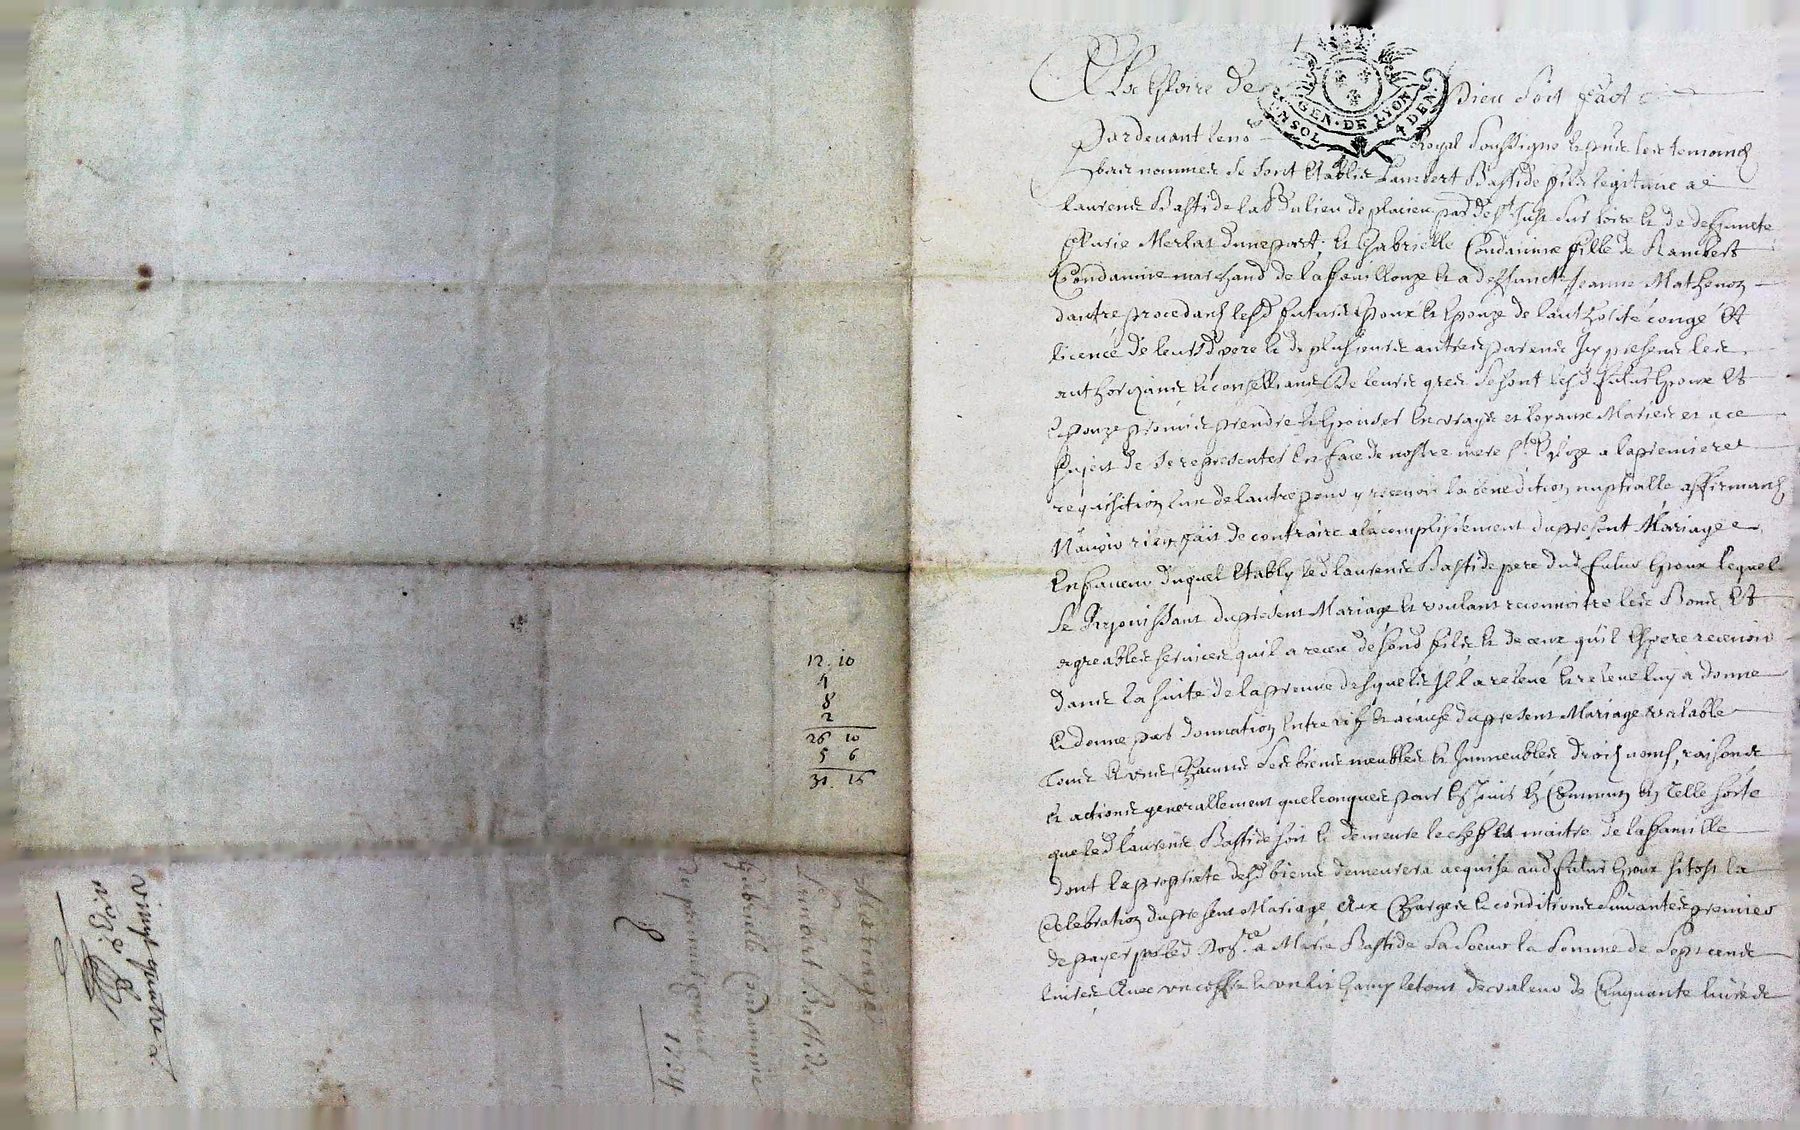 A La Gloire de Dieu Soit fait
GEN · DE LYON
UN SOL 4 DEN.
Pardevant le no.re Royal Soussigné et presens les temoins
bas nommes se sont etablis Lambert Bastide fils legitime a
Laurens Bastide lab.r du lieu de plancieu par.sse de St Just sur Loire et de deffuncte
Marie Merlat d'une part, et Gabrielle Condamine fille de Rambert
Condamine marchand de la ffouillouze et a deffuncte Jeanne Mathevon
d'autre procedans lesd futurs Epoux et Epouze de l'authorité congé et
licence de leursd pere et de plusieurs autres parens Icy presens les
authorizans et conseillians De leurs gres se sont lesd futur Epoux et
Epouze promis prendre et Epouser en vrays et loyaux Maries et a ce
sujet de se representer en face de nostre mere Ste Eglize a la premiere
requisition l'un de l'autre pour y recevoir la benediction nuptialle affirmans
N'avoir rien fait de contraire a l'acomplissement du present Mariage
En faveur duquel Etably led Laurens Bastide pere dud futur Epoux lequel
Se Rejouissant du present Mariage et voulant reconnoitre les Bons et
agreables services qu'il a receu de sond fils et de ceux qu'il Espere recevoir
dans la suite de la preuve desquels Il l'a relevé et releve luy a donne
et donne par donnation Entre vifs et a cause du present Mariage valable
Tous et uns Chacuns Ses biens meubles et Immeubles droits noms, raisons
et actions generallement quelconques En telle sorte
que led Laurens Bastide soit et demeure le chef et maitre de la ffamille
dont la proprieté desd biens demeurera acquise aud futur Epoux sitost la
Celebration du present Mariage, Aux Charges et conditions suivantes premier
de payer par led a Marie Bastide Sa Soeur la Somme de Sept cens
livres Avec un coffre et un lit de valeur de Cinquante livres
12 . 10
4
8
2
26 10
5 6
31 . 16
Mariage
Lambert Bastide
Gabrielle Condamine
Du premier
vingt quatre